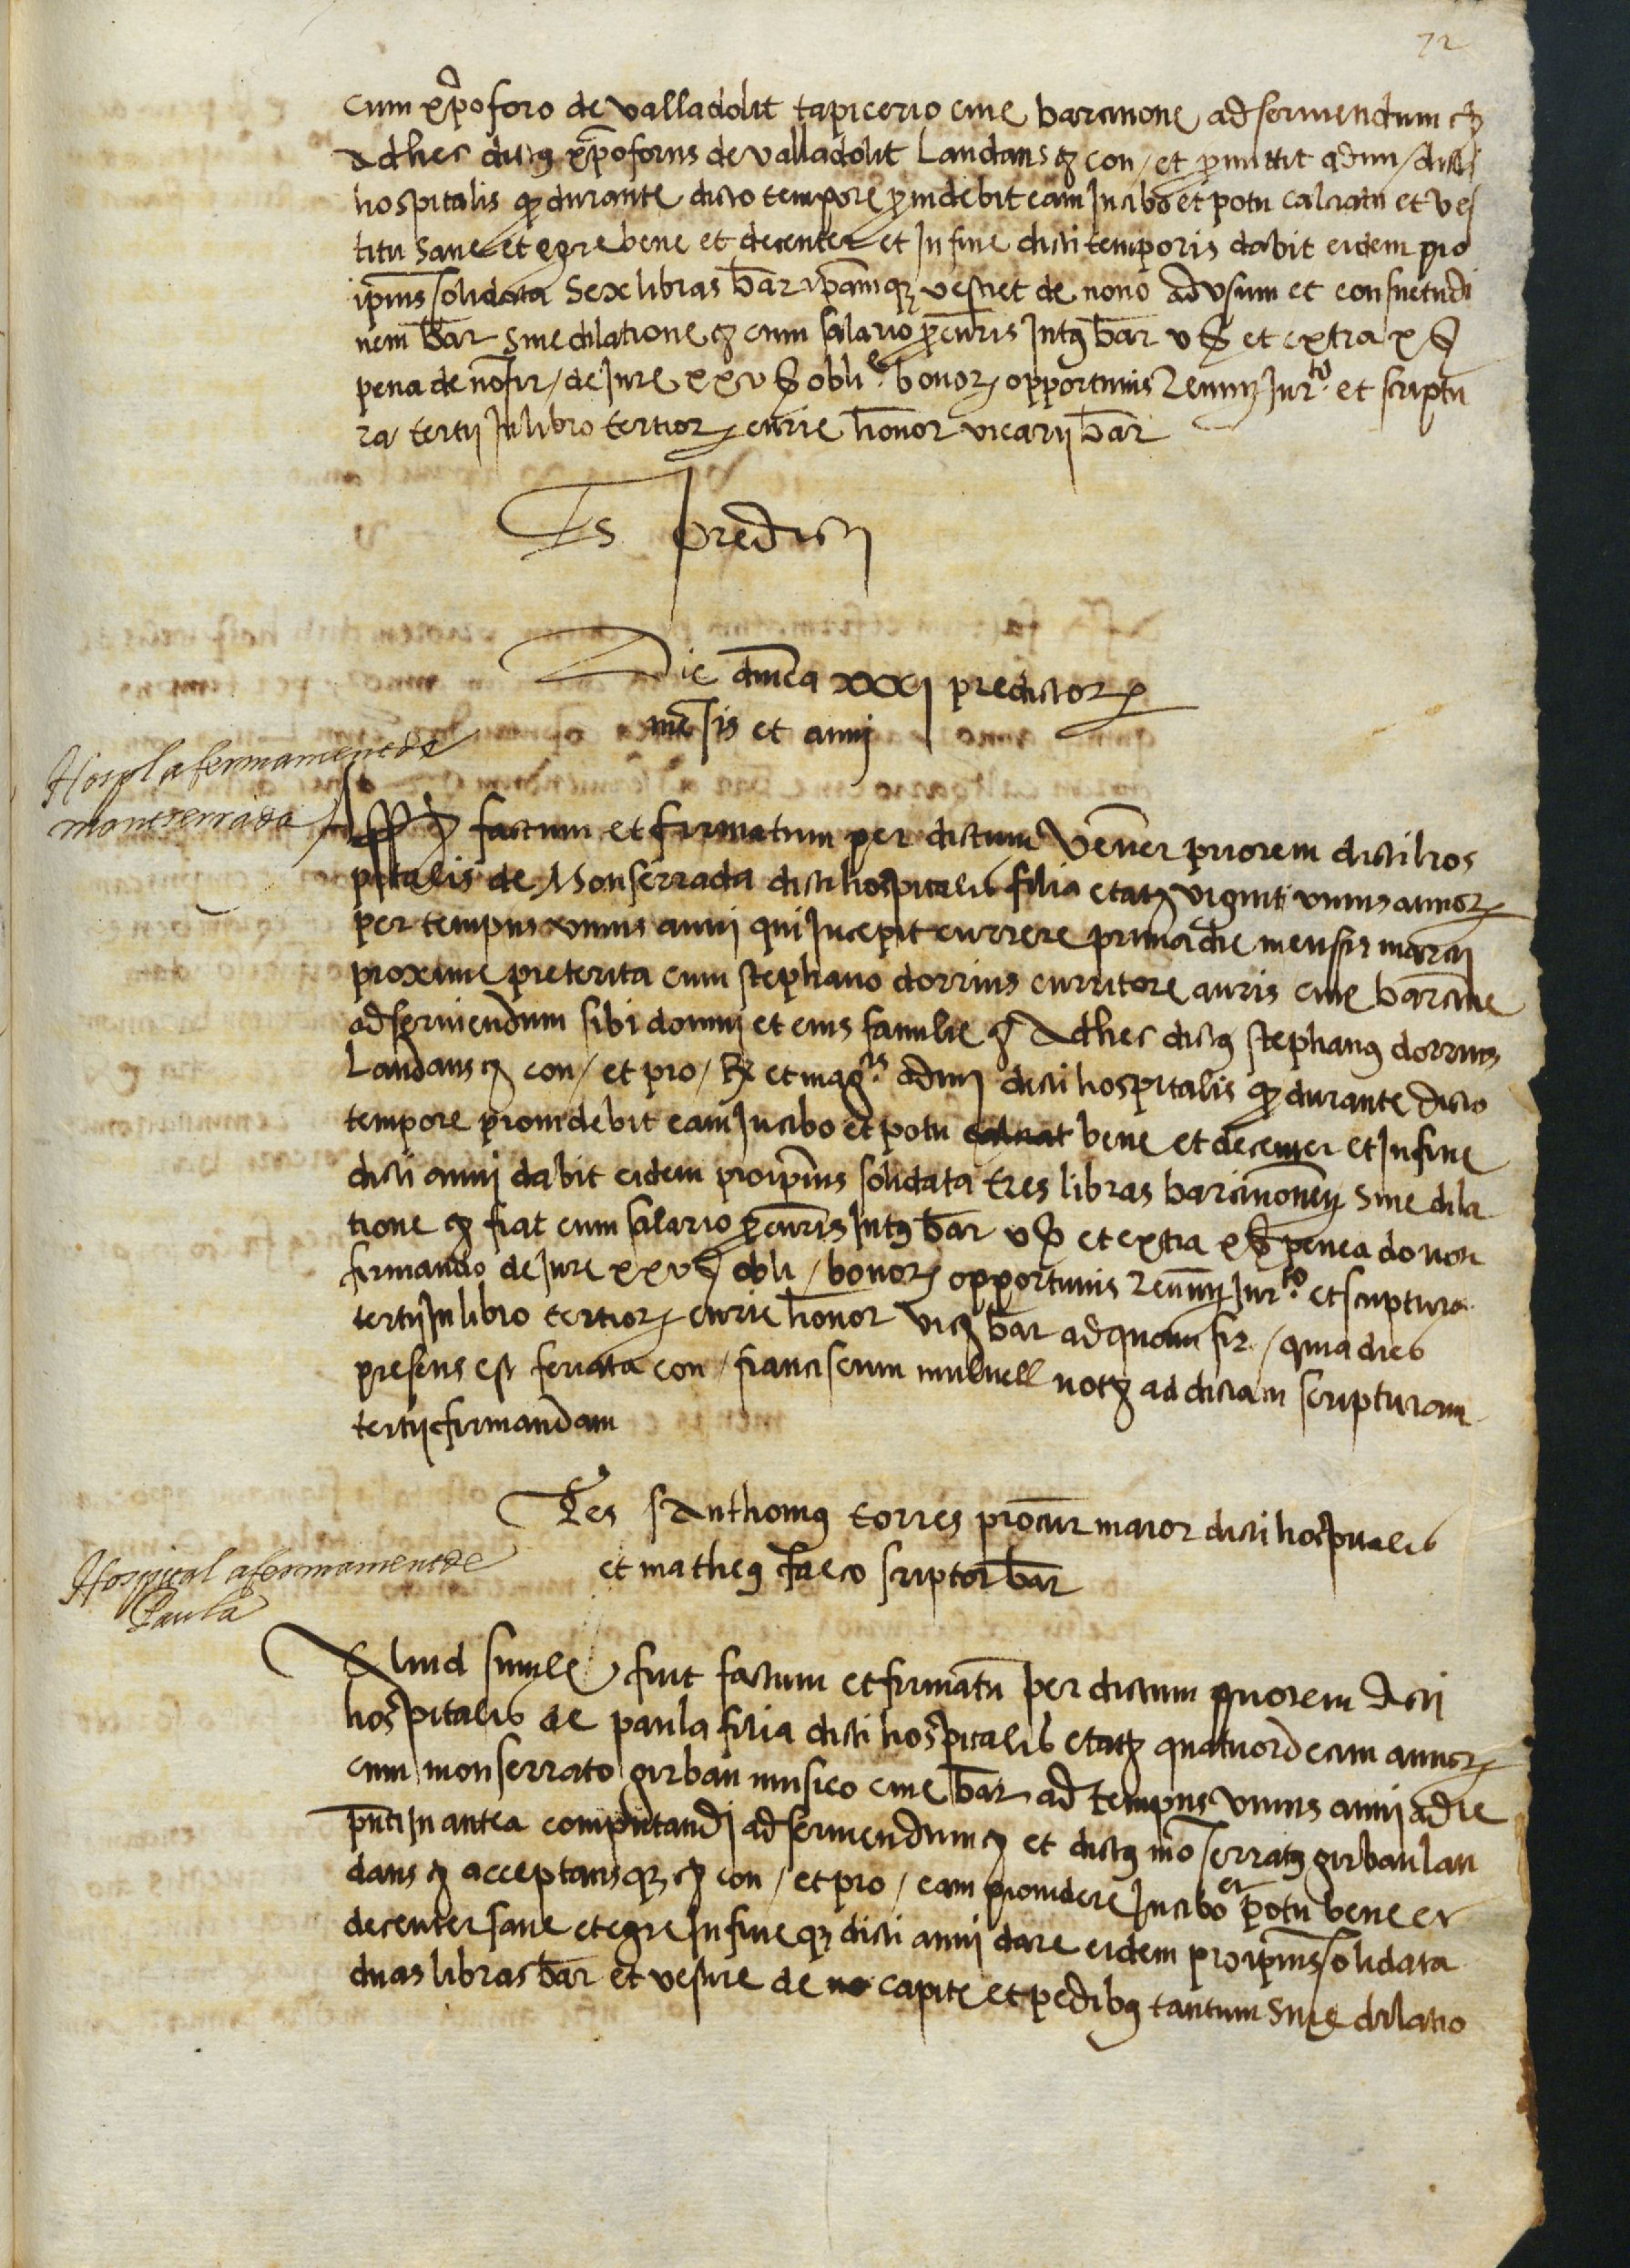 72
cum xpoforo de valladolit tapicerio cive barcinone ad serviendum etc
Adhec dictus xpoforus de valladolit Laudans etc con / et promittit admi / dicti
hospitalis q durante dicto tempore providebit eam In cibo et potu calciatu et ves
titu sane et egre bene et decenter et In fine dicti temporis dabit eidem pro
ipius solidata Sex libras bar ipamq vestiet de novo ad usum et consuetudi
nem bar sine dilatione etc cum salario procuris Intus bar v s et extra x s
pena de no fir / de Jure xxv s obli e bonor opportunis Renun Jur to et scriptu
ra tertii In libro tertior curie honor vicarii bar
Ts predicti
Die dnica xxxi predictor
mesis et anni
Hospl afermament de
montserrada
factum et firmatum per dictum Vener priorem dicti hos
pitalis de Monserrada dicti hospitalis filia etatis viginti unius annor
per tempus unius anni qui Incepit currere prima die mensis marcii
proxime preterita cum stephano dorrius curritore auris cive barcine
ad serviendum sibi domui et eius familie etc Adhec dictus stephanus dorrius
Laudans etc con / et pro / et mag cis admi dicti hospitalis q durante dicto
tempore providebit eam In cibo et potu calciat bene et decenter et In fine
dicti anni dabit eidem pro ipius solidata tres libras barcinonen sine dila
tione etc fiat cum salario procuris Intus bar v s et extra x s penea de non
firmando de Jure xxv s obli / bonor opportunis Renun Jur to et scriptura
tertii In libro tertior curie honor vic bar ad quam fir / quia dies
presens est feriata con / franciscum mulnell not ad dictam scripturam
tertii firmandam
Tes s Anthonius torres procur maior dicti hospitalis
et matheus faeco scriptor bar
Hospital afermament de
Paula
Aliud simile fuit factum et firmatu per dictum priorem dicti
hospitalis de paula filia dicti hospitalis etatis quatuordecim annor
cum monserrato girbau musico cive bar ad tempus unius anni a die
pnti In antea computandi ad serviendum etc et dictus moserratus girbau lau
dans etc acceptansq etc con / et pro / eam providere In cibo et potu bene et
decenter sane et egre In fine q dicti anni dare eidem pro ipius solidata
duas libras bar et vestire de no capite et pedibus tantum sine dilatio